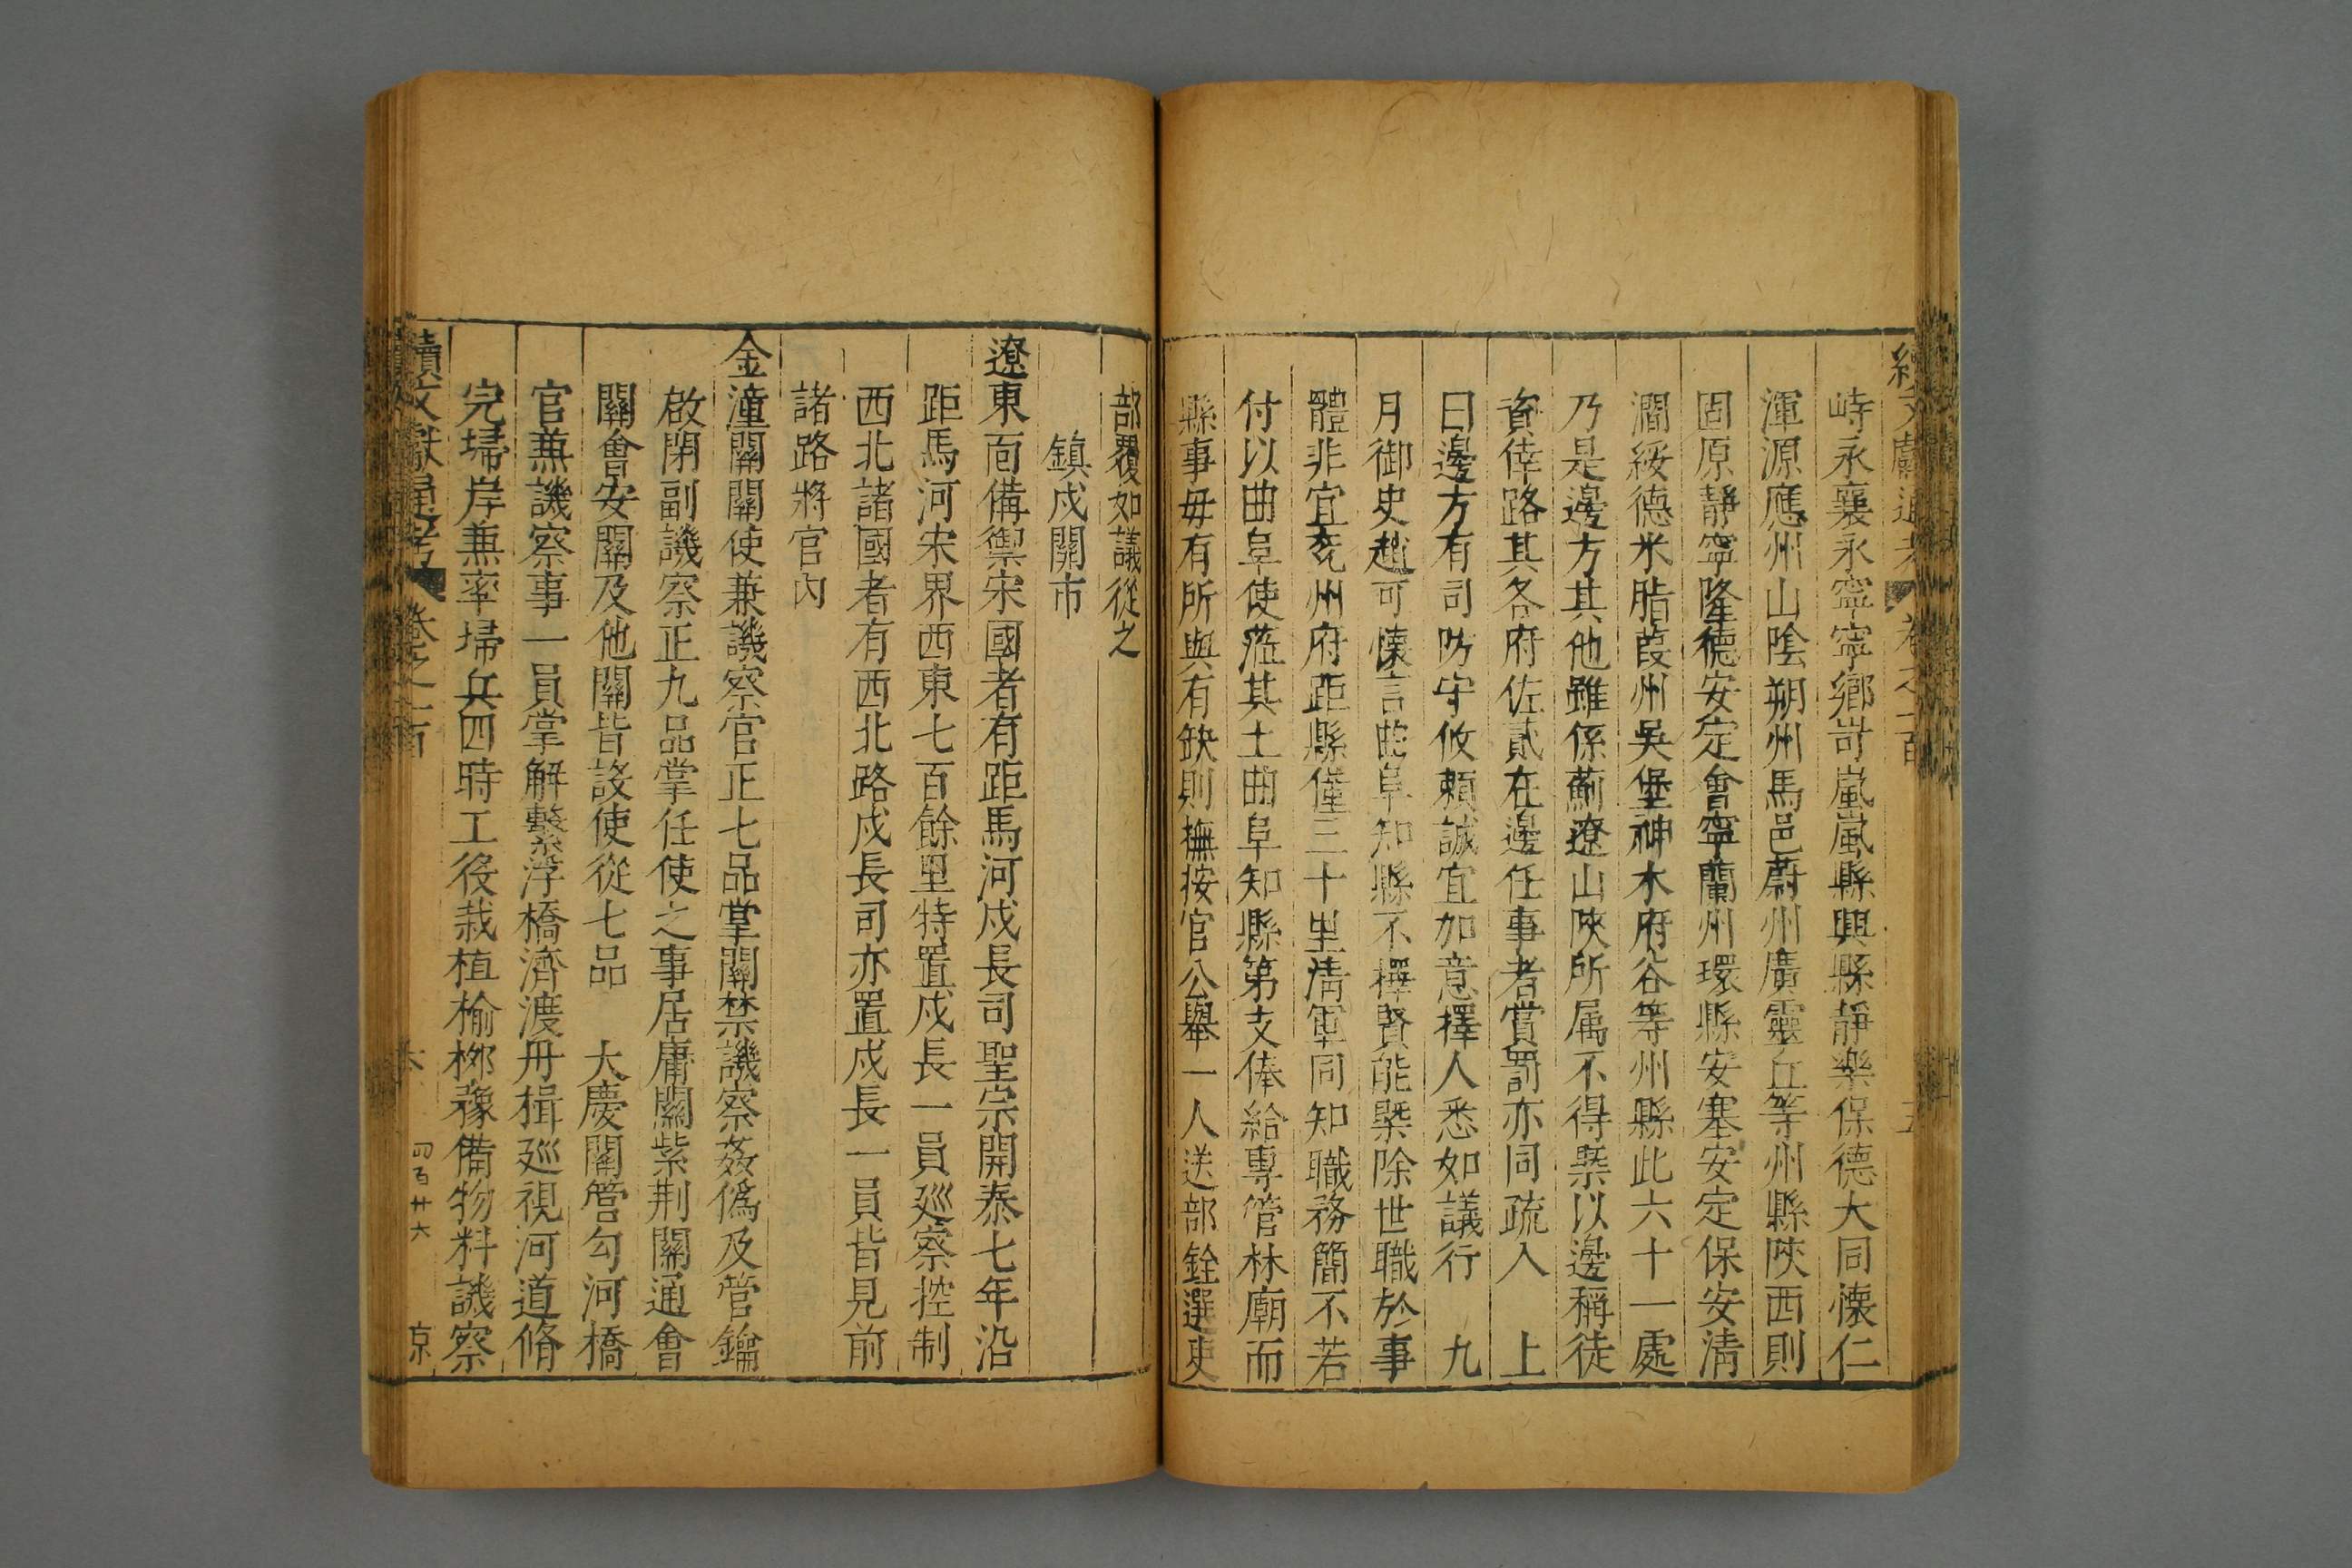 續文獻通考 卷之一百 五
峙永襄永寧寧鄉岢嵐嵐縣興縣靜樂保德大同懷仁
渾源應州山陰朔州馬邑蔚州廣靈丘等州縣陝西則
固原靜寧隆德安定會寧蘭州環縣安塞安定保安清
澗綏德米脂葭州吳堡神木府谷等州縣此六十一處
乃是邊方其他雖係薊遼山陝所属不得槩以邊稱徒
資倖路其各府佐貳在邊任事者賞罰亦同疏入 上
曰邊方有司防守攸賴誠宜加意擇人悉如議行 九
月御史趙可懷言曲阜知縣不擇賢能槩除世職於事
體非宜兗州府距縣僅三十里清軍同知職務簡不若
付以曲阜使蒞其土曲阜知縣第支俸給專管林廟而
縣事毋有所與有缺則撫按官公舉一人送部銓選吏
部覆如議從之
鎮戍關市
遼東面備禦宋國者有距馬河戍長司聖宗開泰七年沿
距馬河宋界西東七百餘里特置戍長一員廵察控制
西北諸國者有西北路戍長司亦置戍長一員皆見前
諸路將官內
金潼關關使兼譏察官正七品掌關禁譏察姦僞及管鑰
啟閉副譏察正九品掌任使之事居庸關紫荆關通會
關會安關及他關皆設使從七品 大慶關管勾河橋
官兼譏察事一員掌解繫浮橋濟渡舟楫廵視河道脩
完埽岸兼率埽兵四時工役栽植榆柳豫備物料譏察
續文獻通考 卷之一百 六 四百廿六 京